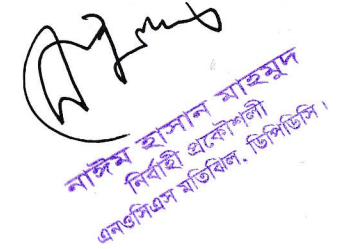 নাঈম হাসান মাহমুদ
নির্বাহী প্রকৌশলী
এনওসিএস মতিঝিল, ডিপিডিসি।